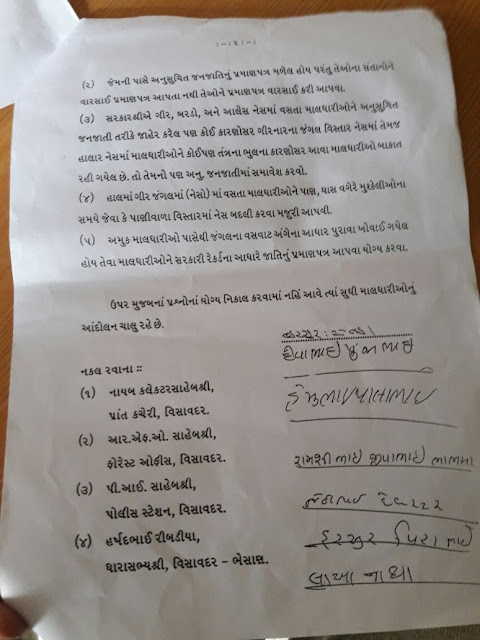 :-૨-:
(૨) જેમની પાસે અનુસુચિત જનજાતિનું પ્રમાણપત્ર મળેલ હોય પરંતુ તેઓના સંતાનોને
વારસાઈ પ્રમાણપત્ર આપતા નથી તેઓને પ્રમાણપત્ર વારસાઈ કરી આપવા.
(૩) સરકારશ્રીએ ગીર, બરડો, અને આલેસ નેસમાં વસતા માલધારીઓને અનુસુચિત
જનજાતી તરીકે જાહેર કરેલ પણ કોઈ કારણોસર ગીરનારના જંગલ વિસ્તાર નેસમાં તેમજ
હાલાર નેસમાં માલધારીઓને કોઈપણ તંત્રના ભુલના કારણોસર આવા માલધારીઓ બાકાત
રહી ગયેલ છે. તો તેમનો પણ અનુ. જનજાતીમાં સમાવેશ કરવો.
(૪) હાલમાં ગીર જંગલમાં (નેસો) માં વસતા માલધારીઓને પાણ, ઘાસ વગેરે મુશ્કેલીઓના
સમયે જેવા કે પાણીવાળા વિસ્તારમાં નેસ બદલી કરવા મજુરી આપવી.
(૫) અમુક માલધારીઓ પાસેથી જંગલના વસવાટ અંગેના આધાર પુરાવા ખોવાઈ ગયેલ
હોય તેવા માલધારીઓને સરકારી રેકર્ડના આધારે જાતિનું પ્રમાણપત્ર આપવા યોગ્ય કરવા.
ઉપર મુજબનાં પ્રશ્નોનાં યોગ્ય નિકાલ કરવામાં નહિં આવે ત્યાં સુધી માલધારીઓનું
આંદોલન ચાલુ રહે છે.
નકલ રવાના ::
(૧) નાયબ કલેકટરસાહેબશ્રી,
પ્રાંત કચેરી, વિસાવદર.
(૨) આર.એફ.ઓ. સાહેબશ્રી,
ફોરેસ્ટ ઓફીસ, વિસાવદર.
(૩) પી.આઈ. સાહેબશ્રી,
પોલીસ સ્ટેશન, વિસાવદર.
(૪) હર્ષદભાઈ રીબડીયા,
ધારાસભ્યશ્રી, વિસાવદર – ભેસાણ.
રામશી ભાઇ જીવાભાઇ